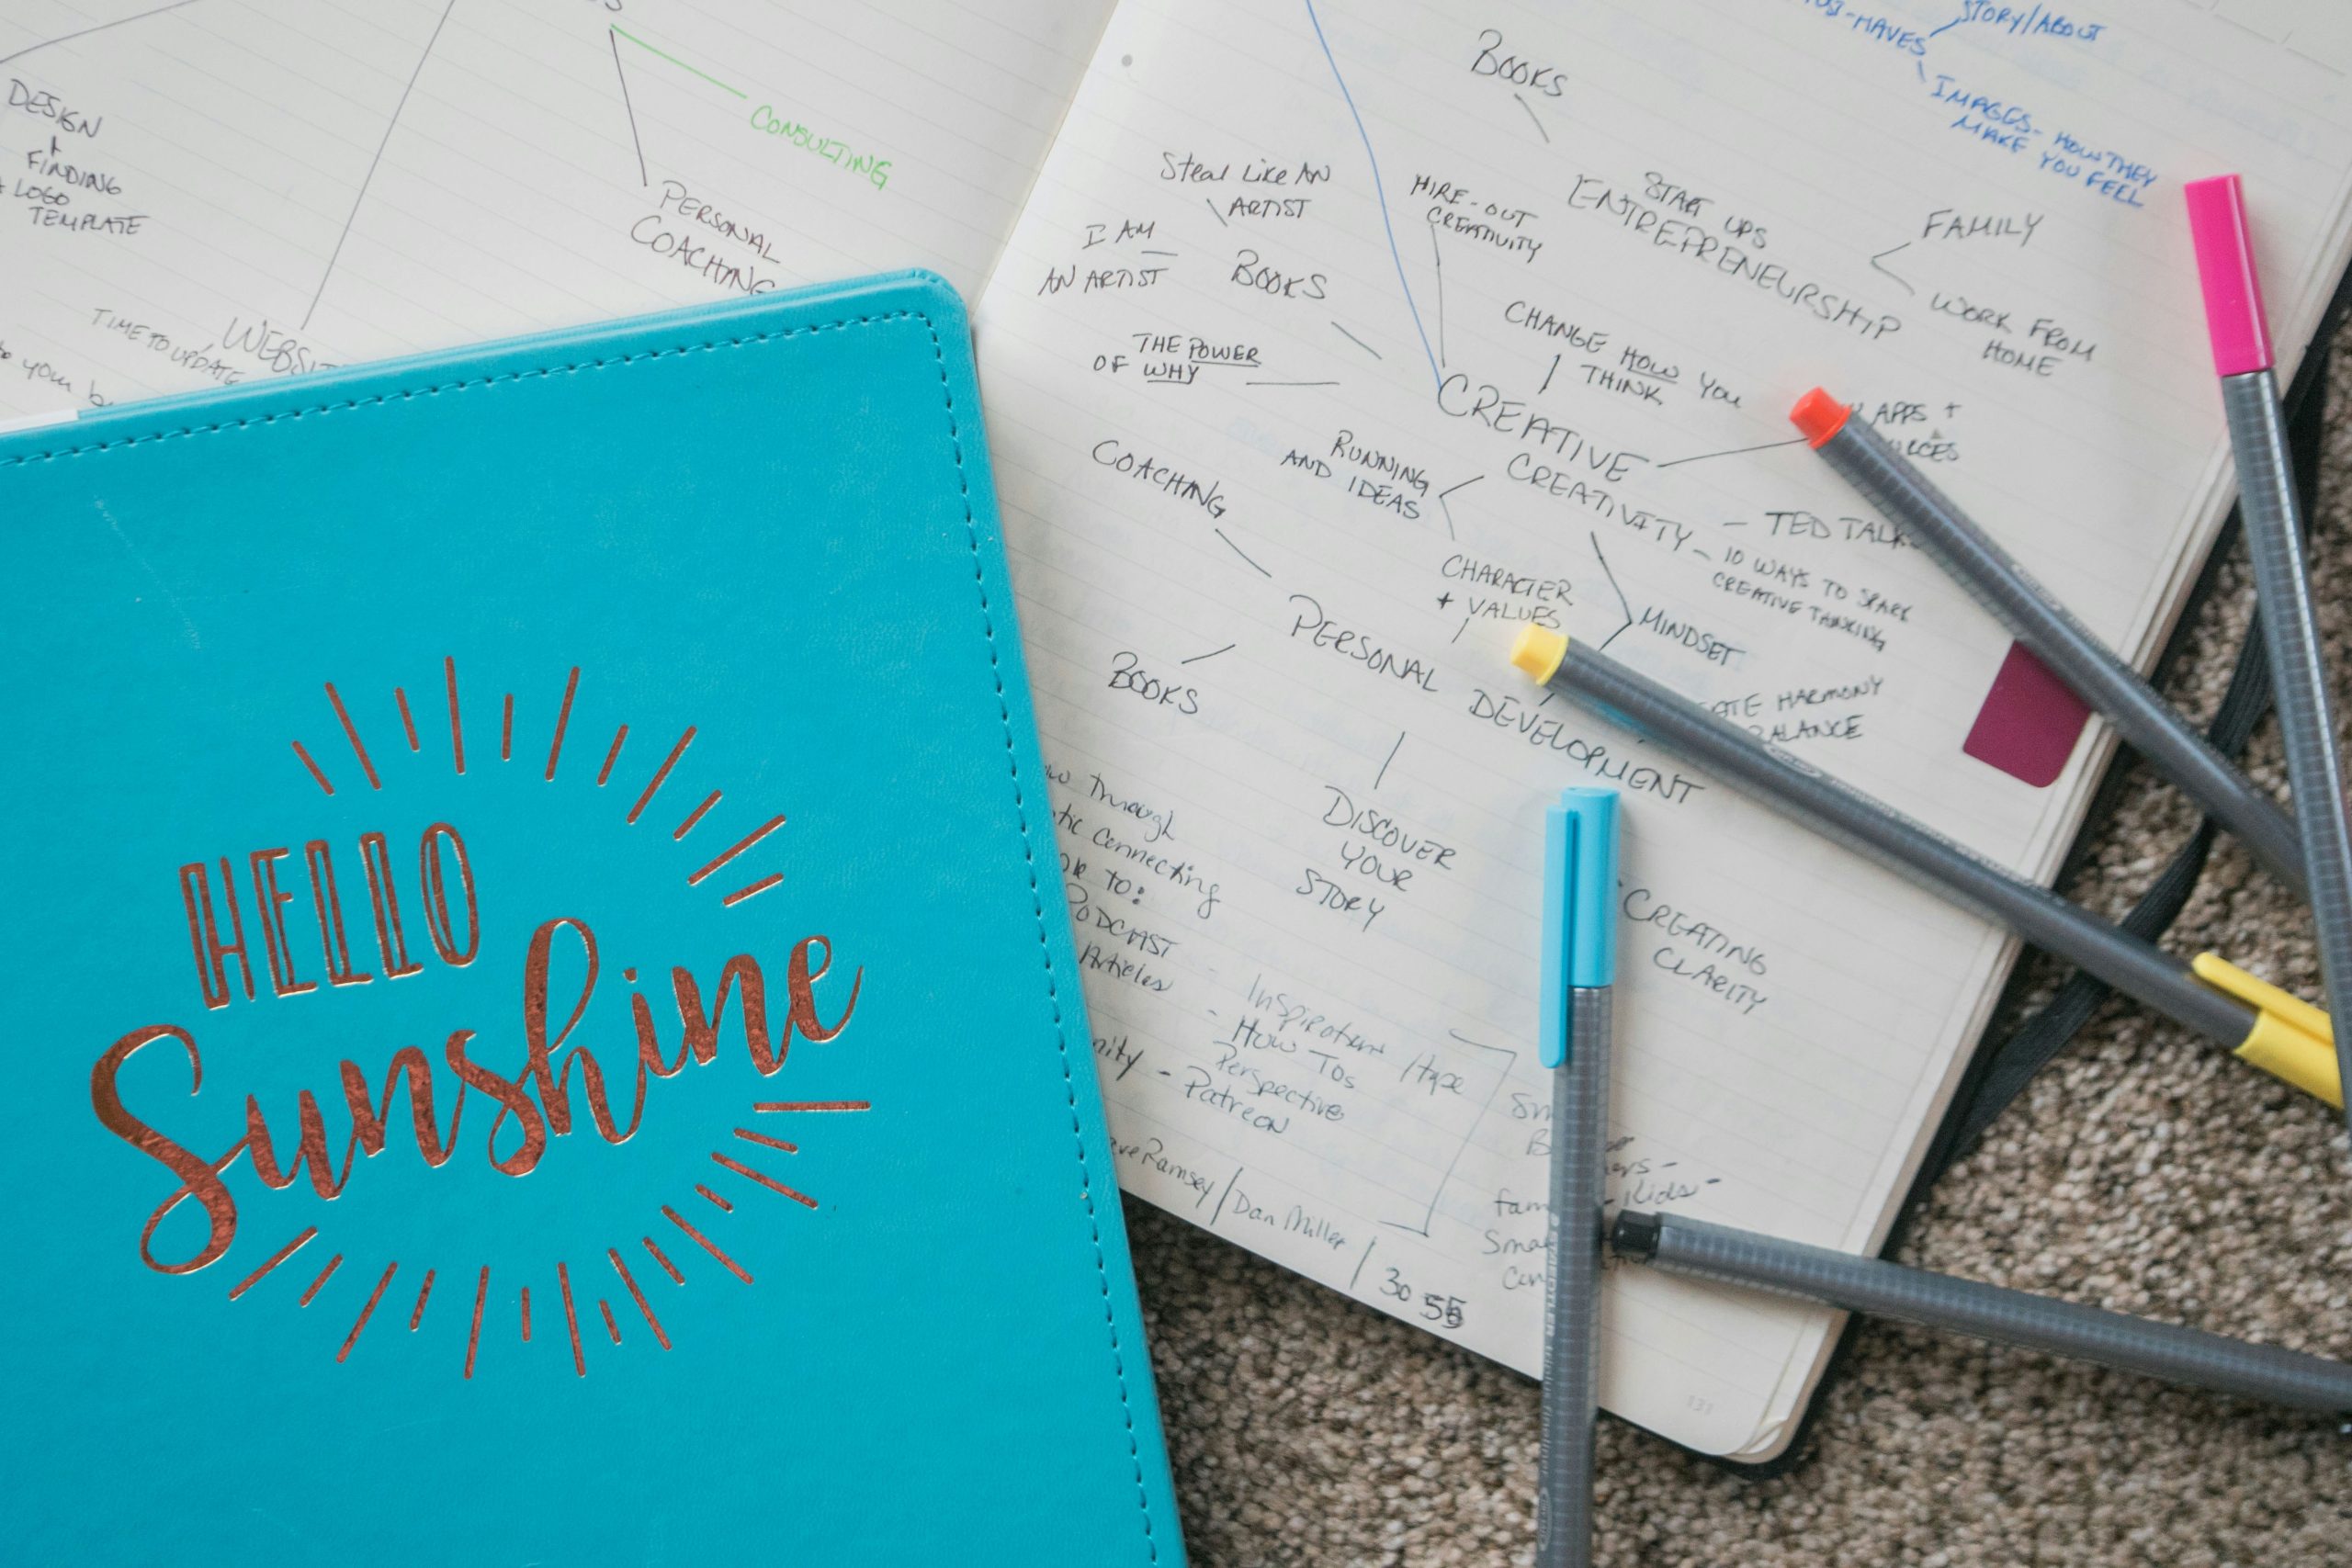 DESIGN
+
FINDING
A LOGO
TEMPLATE
CONSULTING
PERSONAL
COACHING
TIME TO UPDATE
WEBSITE
your
HELLO
Sunshine
BOOKS
STORY/ABOUT
IMAGES - HOW THEY
MAKE YOU FEEL
Steal Like AN
ARTIST
I AM
AN ARTIST
BOOKS
HIRE-OUT
CREATIVITY
START UPS
ENTREPRENEURSHIP
FAMILY
WORK FROM
HOME
THE POWER
OF WHY
CHANGE HOW YOU
THINK
CREATIVE
CREATIVITY
APPS +
RUNNING
AND IDEAS
COACHING
- TED TALKS
- 10 WAYS TO SPARK
CREATIVE THINKING
CHARACTER
+ VALUES
MINDSET
PERSONAL
DEVELOPMENT
BOOKS
HARMONY
BALANCE
DISCOVER
YOUR
STORY
CREATING
CLARITY
Through
connecting
to:
PODCAST
Articles
- Inspiration /type
- How Tos
Perspective
- Patreon
Ramsey/Dan Miller / 30 55
Kids -
131